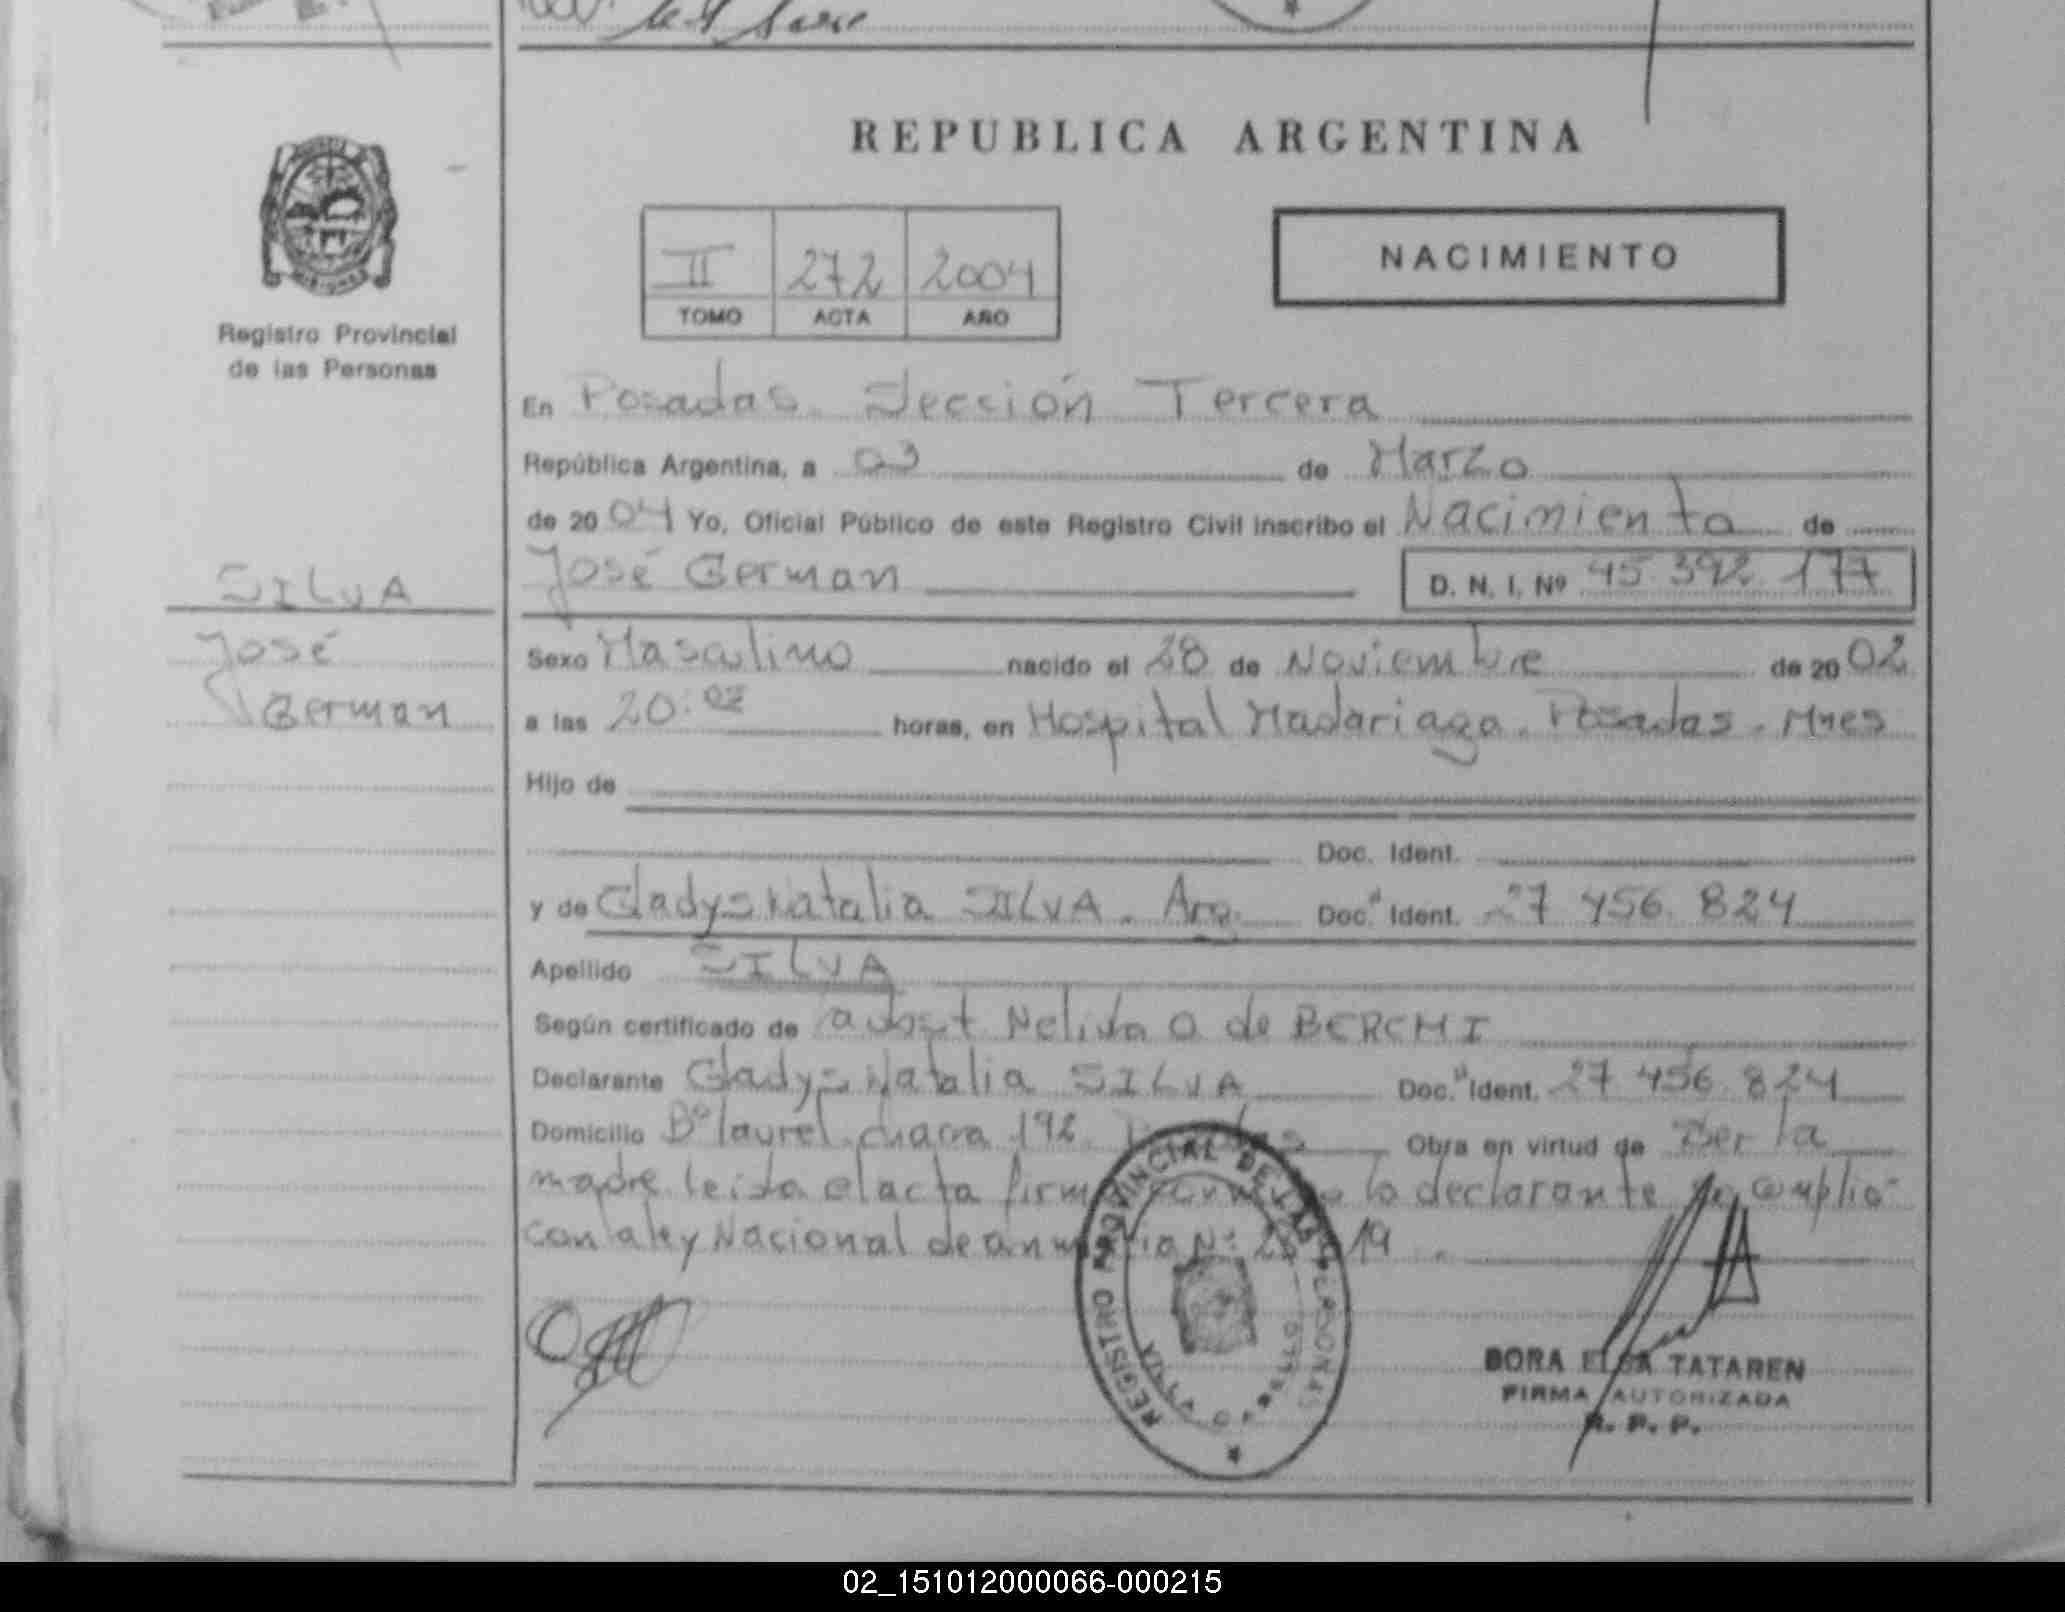 REPUBLICA ARGENTINA
II 272 2004
TOMO ACTA AÑO
NACIMIENTO
Registro Provincial
de las Personas
SILVA
José
German
En Posadas. Sección Tercera
República Argentina, a 03 de Marzo
de 2004 Yo, Oficial Público de este Registro Civil inscribo el Nacimiento de
José German D. N. I. Nº 45.392.177
Sexo Masculino nacido el 28 de Noviembre de 2002
a las 20:02 horas, en Hospital Madariaga. Posadas. Mnes
Hijo de
Doc. Ident.
y de Gladys Natalia SILVA. Arg. Doc. Ident. 27 456. 824
Apellido SILVA
Según certificado de Nelida O de BERCHI
Declarante Gladys Natalia SILVA Doc. Ident. 27 456. 824
Domicilio Bº laurel. chacra 192. Obra en virtud de Ser la
madre. leida el acta la declarante se cumplio
con la ley Nacional de Nº 19
REGISTRO PROVINCIAL DE LAS PERSONAS
VILLA
DORA ELSA TATAREN
FIRMA AUTORIZADA
R. P. P.
02_151012000066-000215